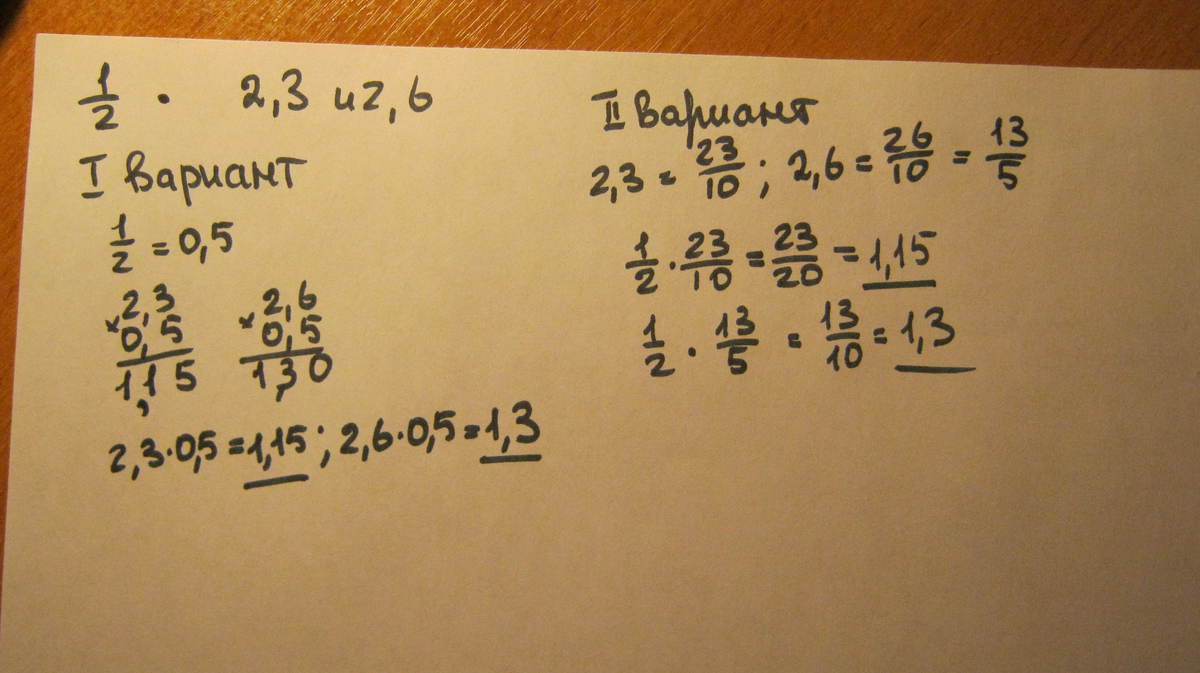 1/2 · 2,3 и 2,6
I вариант
1/2 = 0,5
× 2,3 × 2,6
0,5 0,5
1,15 1,30
2,3·0,5=1,15; 2,6·0,5=1,3
II вариант
2,3 = 23/10; 2,6 = 26/10 = 13/5
1/2 · 23/10 = 23/20 = 1,15
1/2 · 13/5 = 13/10 = 1,3